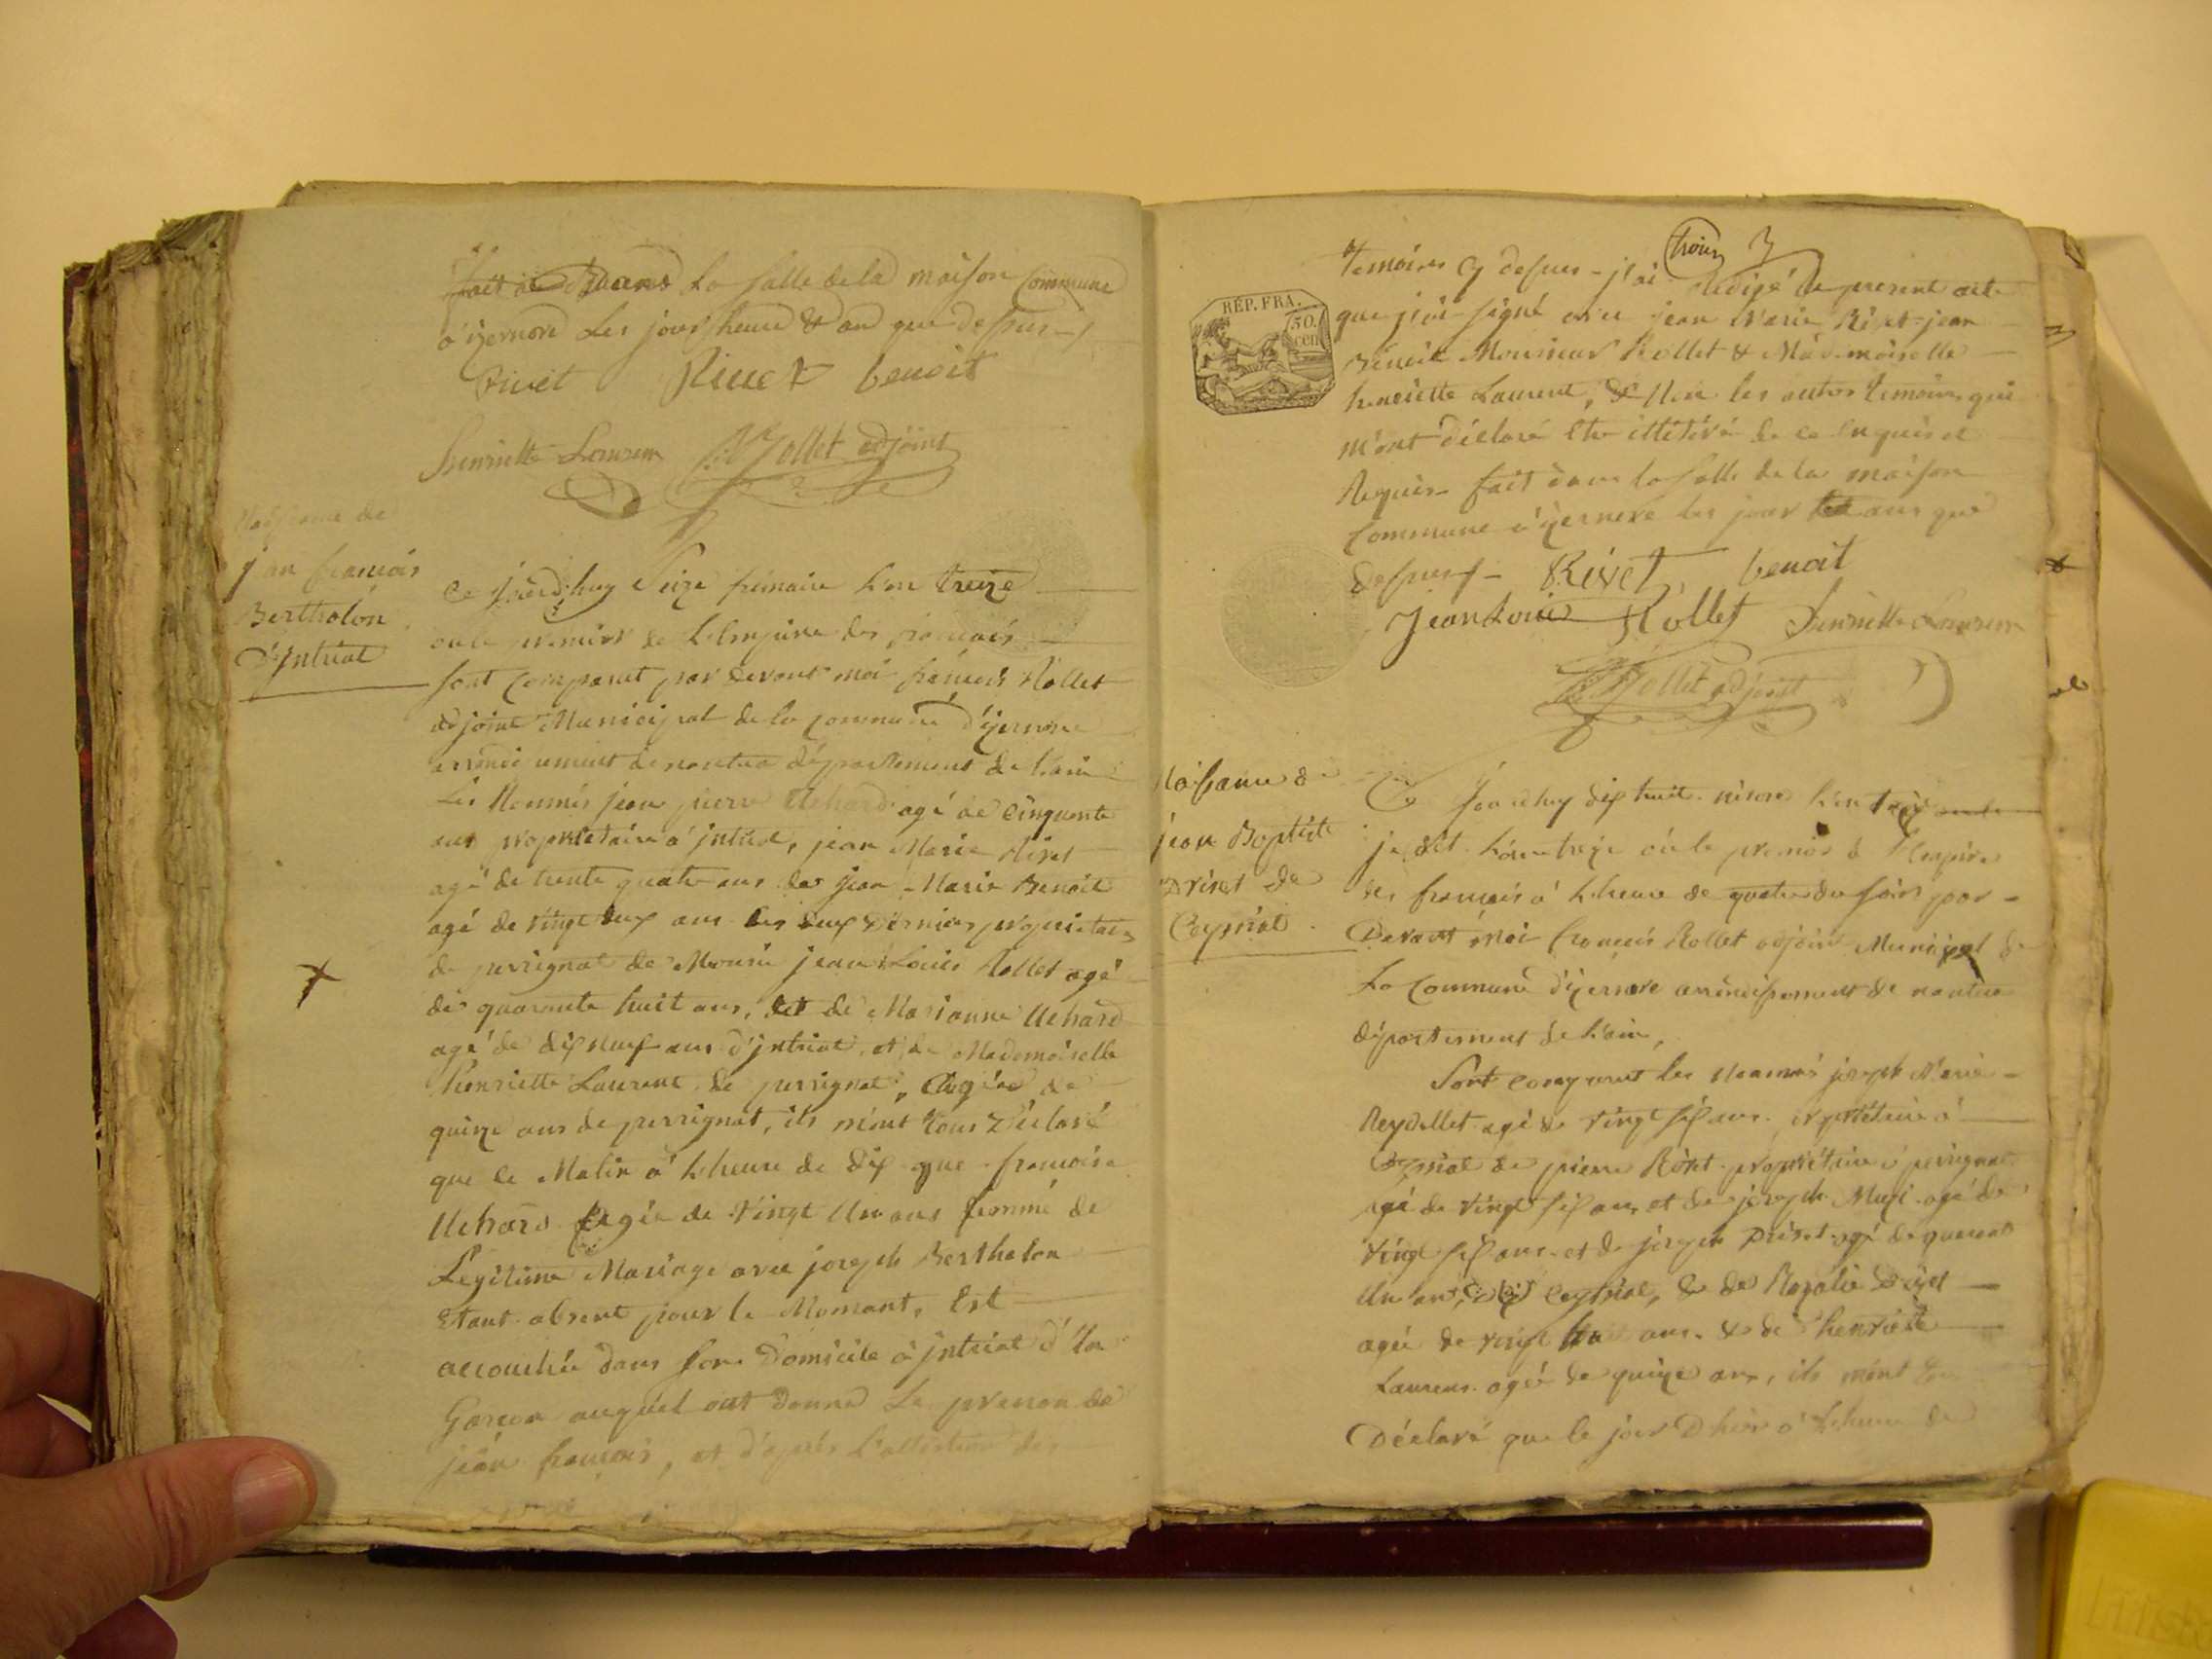 fait à Dans la salle de la maison Commune
a izernore les jour, heure & an que dessus
Rivet Rivet benoit
Henriette Laurem Rollet adjoint
Naissance de
jean francois
Bertholon
d'jntriat
Ce jourd'huy Seize frimaire L'an treize
ou le premier de L'Empire des francais
sont comparut par devant moi francois Rollet
adjoint Municipal de la commune d'izernore
arrondissement de nantua département de L'ain
Les Nommés jean pierre Uchard agé de Cinquante
ans propriétaire a jntriat, jean Marie Rivet
agé de trente quatre ans de jean Marie Benoit
agé de vingt deux ans les deux derniers propriétaires
de perrignat de Mousieu jean Louis Rollet agé
de quarante huit ans, et de Marianne Uchard
agé de dix neuf ans d'jntriat, et de Mademoiselle
henriette Laurent de perrignat, agée de
quinze ans de perrignat, ils m'ont tous déclaré
que le Matin a L'heure de dix que francoise
Uchard agée de Vingt Un ans femme de
Legitime Mariage avec joseph Bertholon
Etant absent pour le Momant, Est
accouchée dans son Domicile a jntriat d'Un
Garcon auquel ont donné le prenom de
jean francois, et d'après l'attestation des
trois 3
temoins cy dessus - j'ai rédigé le present acte
que j'ai signé avec jean Marie Rivet jean
Benoit Monsieur Rollet & Mademoiselle
henriette Laurent, & Non les autres temoins qui
m'ont déclaré Etre illitéré de ce Enquis et
Requis - fait dans la salle de la maison
Commune a izernore les jour et ans que
dessus - Rivet benoit
Jean Louis Rollet Henriette Laurem
Rollet adjoint
RÉP. FRA.
50.
cen
Naissance de
jean Baptiste
Driset de
Ceyssiat
Ce Jourd'huy dix huit nivose L'an
je dit L'an treize ou le premier de L'Empire
des francais a L'heure de quatre du soir par
Devant moi francois Rollet adjoint Municipal de
La Commune d'izernore arrondissement de nantua
département de L'ain,
Sont comparut les Nommés joseph Marie
Reydellet agé de vingt six ans propriétaire a
Ceyssiat de pierre Rivet propriétaire a perrignat
agé de vingt six ans et de joseph Muzi agé de
Vingt six ans et de joseph Driset agé de quarante
Un ans, de Ceyssiat, & de Rozalie Driset
agée de vingt huit ans. & de henriette
Laurens agée de quinze ans, ils m'ont tous
Déclaré que le jour D'hier a L'heure de